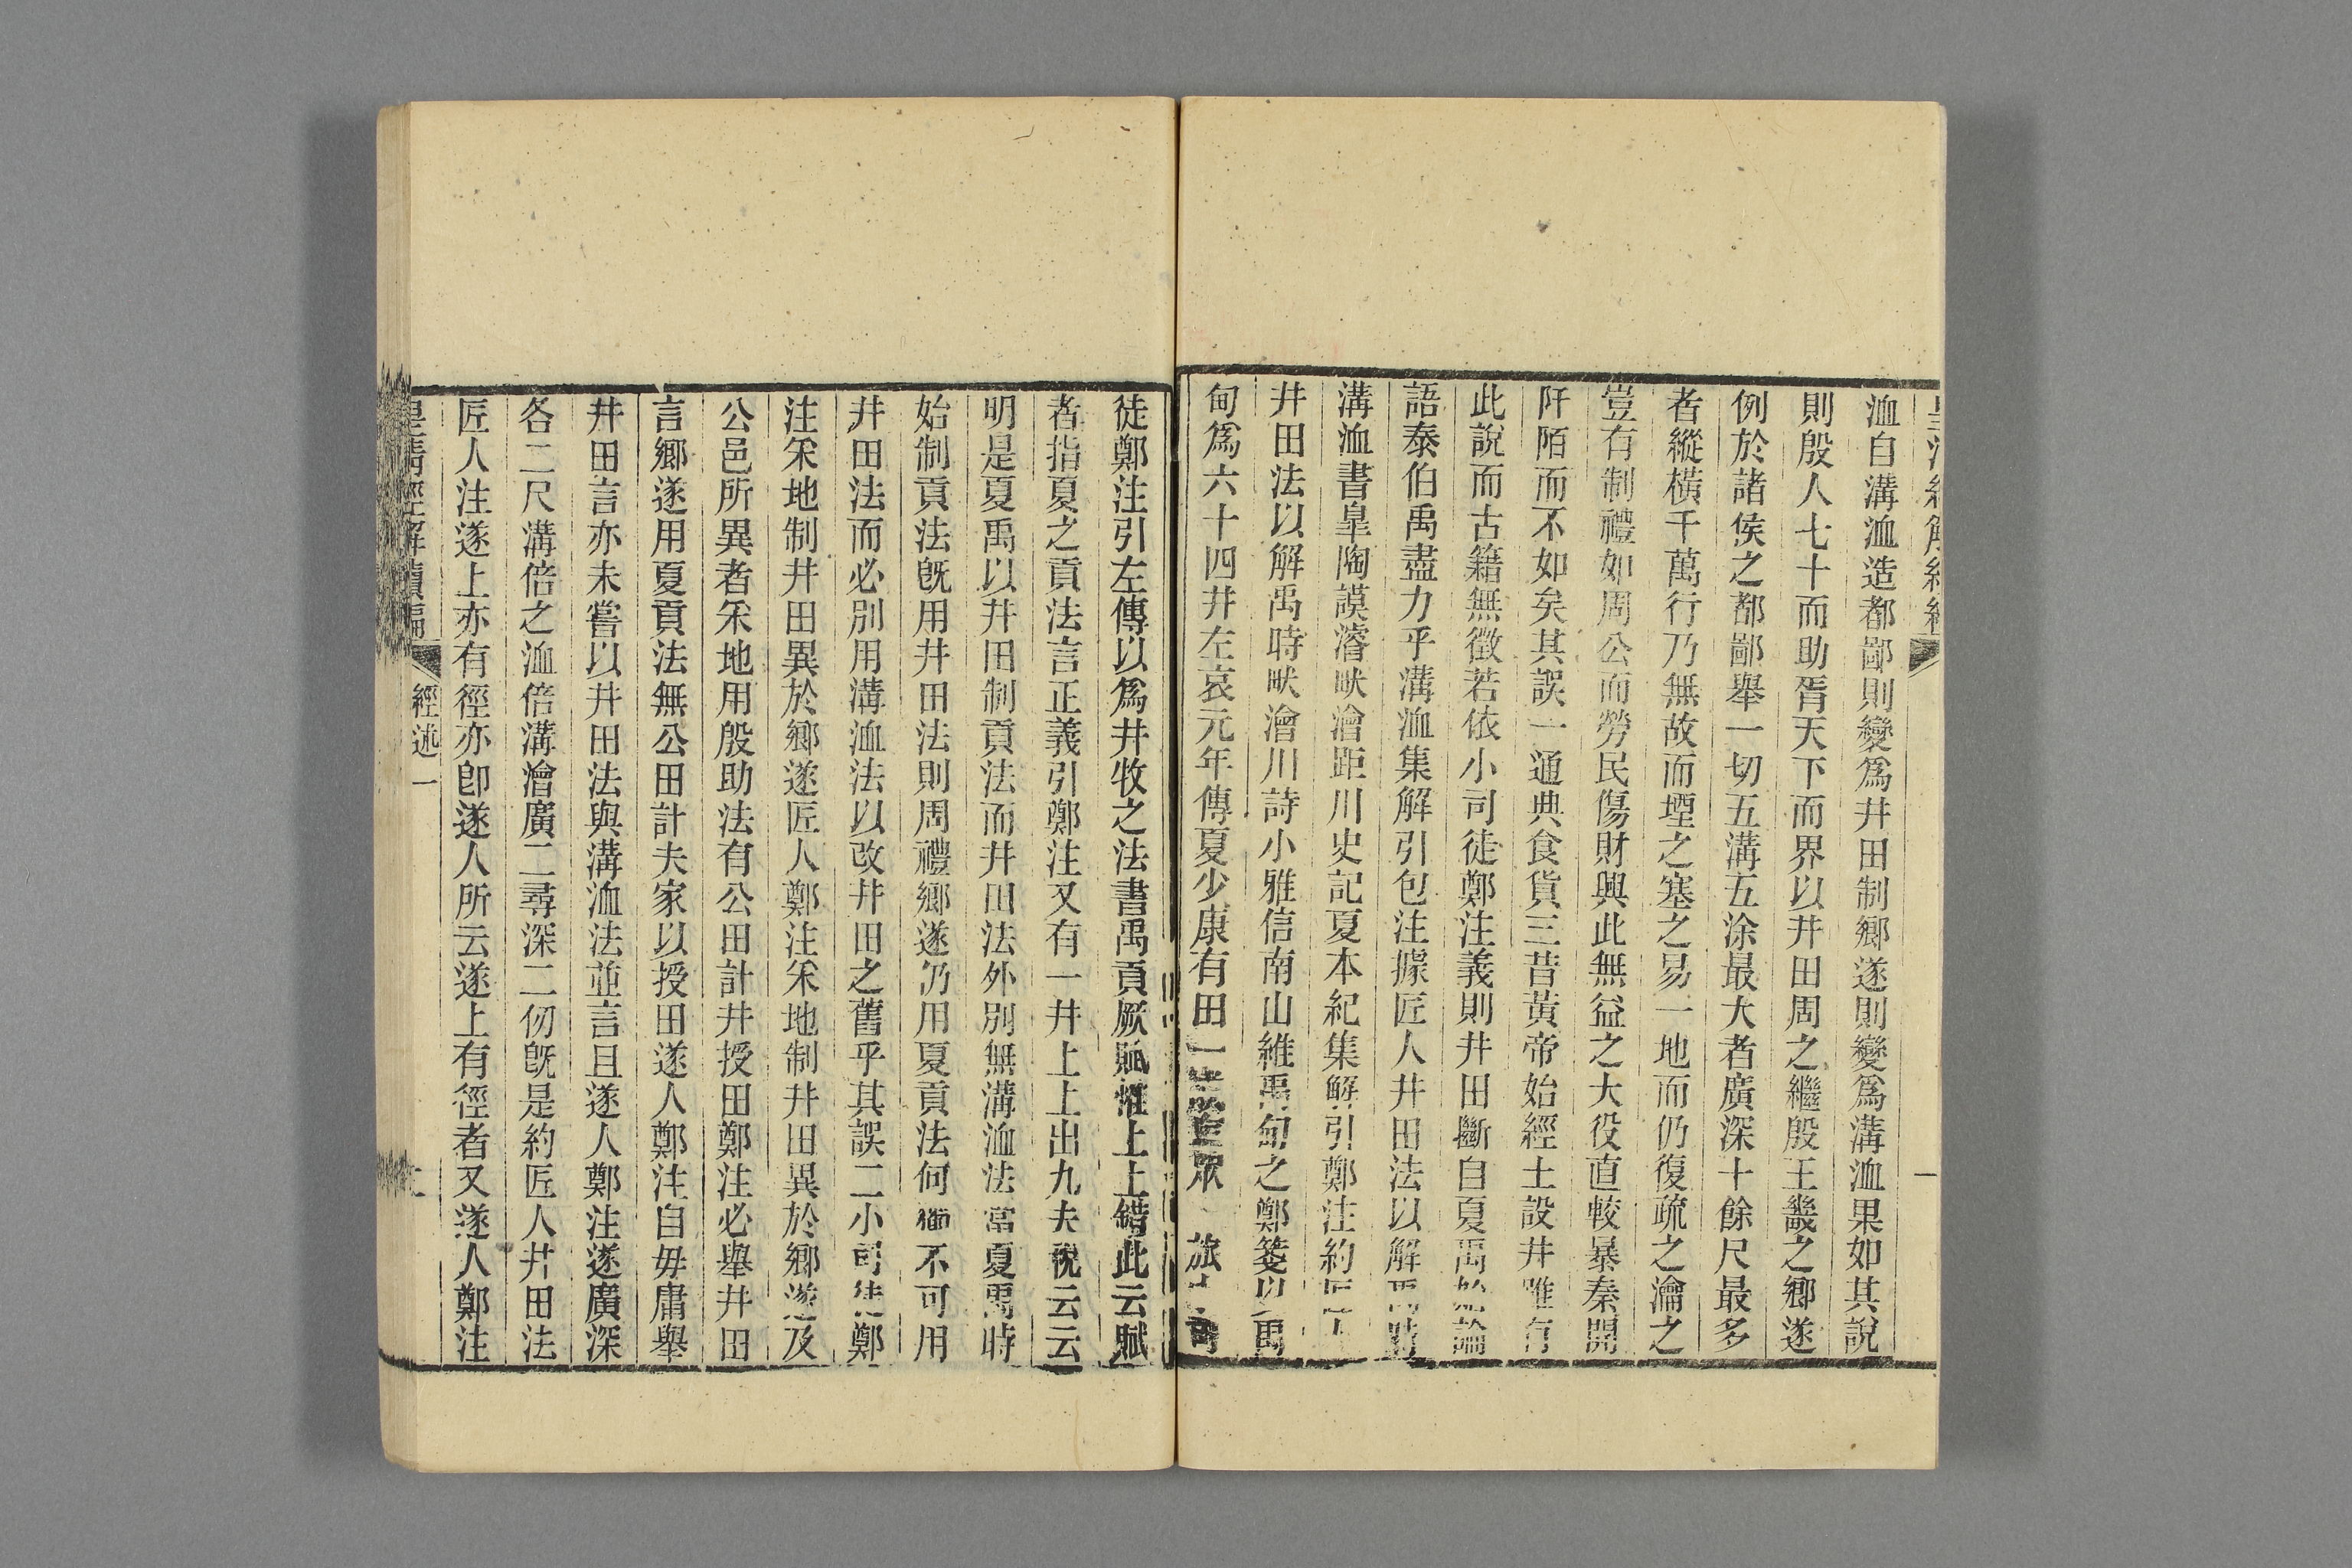 洫自溝洫造都鄙則變爲井田制鄉遂則變爲溝洫果如其說
則殷人七十而助胥天下而界以井田周之繼殷王畿之鄉遂
例於諸侯之都鄙舉一切五溝五涂最大者廣深十餘尺最多
者縱橫千萬行乃無故而堙之塞之易一地而仍復疏之瀹之
豈有制禮如周公而勞民傷財興此無益之大役直較暴秦開
阡陌而不如矣其誤一通典食貨三昔黃帝始經土設井唯有
此說而古籍無徵若依小司徒鄭注義則井田斷自夏禹始論
語泰伯禹盡力乎溝洫集解引包注據匠人井田法以解禹時
溝洫書皐陶謨濬畎澮距川史記夏本紀集解引鄭注約匠人
井田法以解禹時畎澮川詩小雅信南山維禹甸之鄭箋以禹
甸爲六十四井左哀元年傳夏少康有田一成有衆一旅小司
徒鄭注引左傳以爲井牧之法書禹貢厥賦惟上上錯此云賦
者指夏之貢法言正義引鄭注又有一井上上出九夫稅云云
明是夏禹以井田制貢法而井田法外別無溝洫法當夏禹時
始制貢法旣用井田法則周禮鄉遂仍用夏貢法何獨不可用
井田法而必別用溝洫法以改井田之舊乎其誤二小司徒鄭
注采地制井田異於鄉遂匠人鄭注采地制井田異於鄉遂及
公邑所異者采地用殷助法有公田計井授田鄭注必舉井田
言鄉遂用夏貢法無公田計夫家以授田遂人鄭注自毋庸舉
井田言亦未嘗以井田法與溝洫法並言且遂人鄭注遂廣深
各二尺溝倍之洫倍溝澮廣二尋深二仞旣是約匠人井田法
匠人注遂上亦有徑亦卽遂人所云遂上有徑者又遂人鄭注
皇淸經解續編
經述一